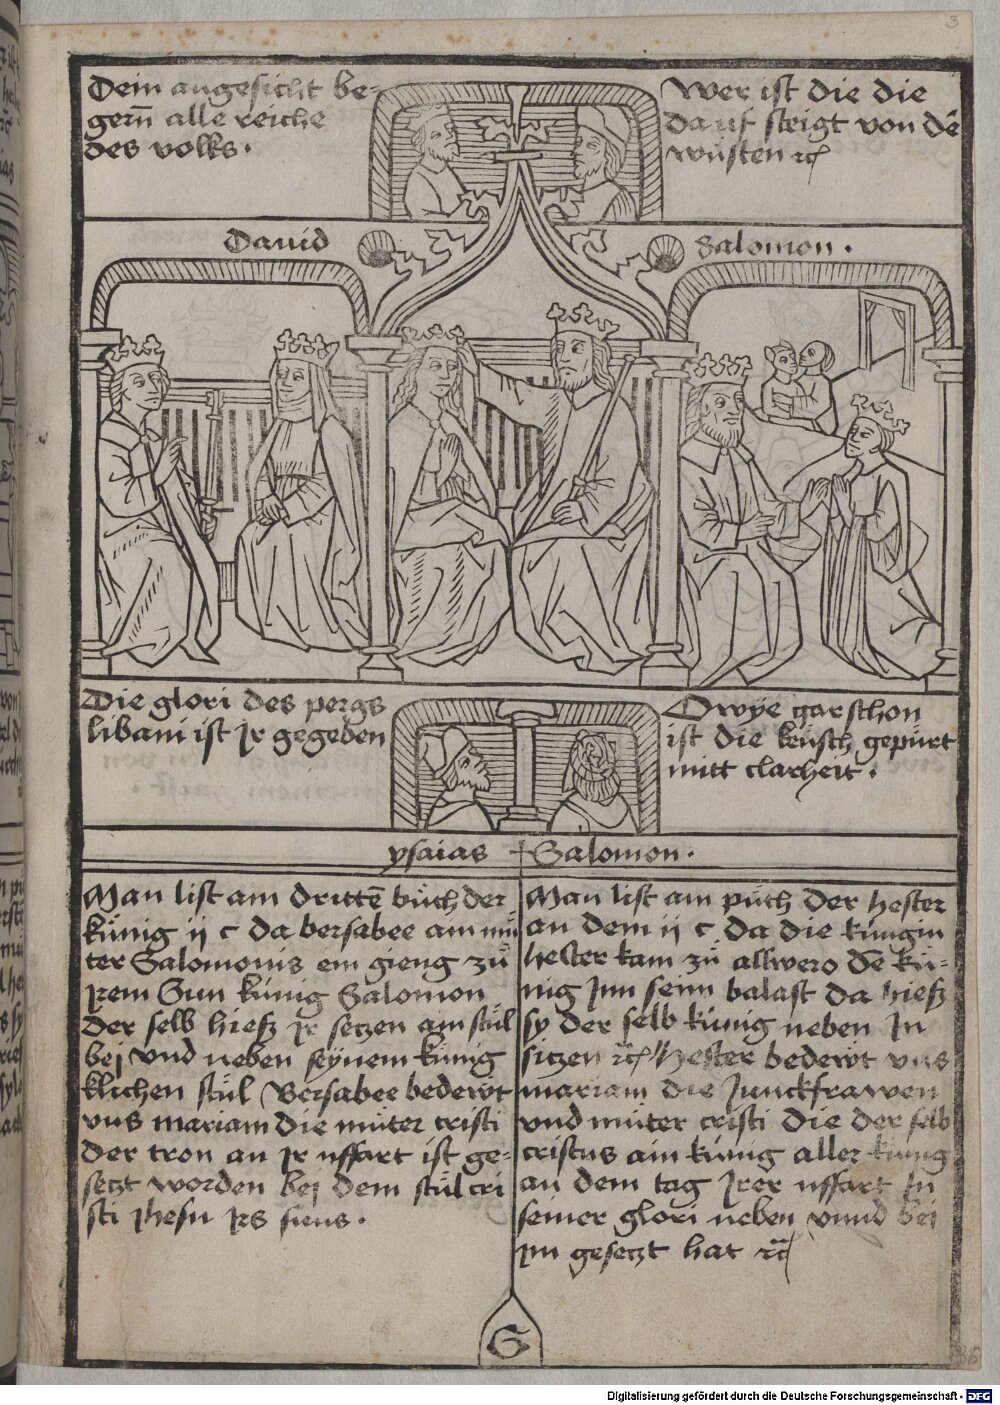 3
Dein angesicht be-
gern̄ alle reiche
des volks.
Wer ist die die
da uf steigt von dē
wu̇sten ⁊c̄
Dauid
Salomon.
Die glori des pergs
libani ist jr gegeben
O wye gar schon
ist die keu̇sch gepu̇rt
mitt clarheit.
ysaias
Salomon.
Man list am dritte͂ bu̇ch der
ku̇nig ij c da bersabee am mu̇
ter Salomonis ein gieng zu̇
jrem Sun ku̇nig Salomon
der selb hiesz jr setzen am stu̇l
bej vnd neben seynem ku̇nig
klichen stu̇l Bersabee bedewt
vns mariam die mu̇ter cristi
der tron an jr uffart ist ge-
setzt worden bej dem stu̇l cri
sti jhesu jrs suns.
Man list am pu̇ch der hester
an dem ij c da die ku̇ngin
hester kam zu̇ aswero de͂ ku̇-
nig jnn seinn balast da hiesz
sy der selb ku̇nig neben jn
sitzen ⁊c̄ Hester bedewt vns
mariam die junckfrawen
vnd mu̇ter cristi die der selb
cristus ain ku̇nig aller ku̇nig
an dem tag jrer uffart jn
seiner glori neben vnnd bei
jm gesetzt hat ⁊c̄
S
Digitalisierung gefördert durch die Deutsche Forschungsgemeinschaft - DFG